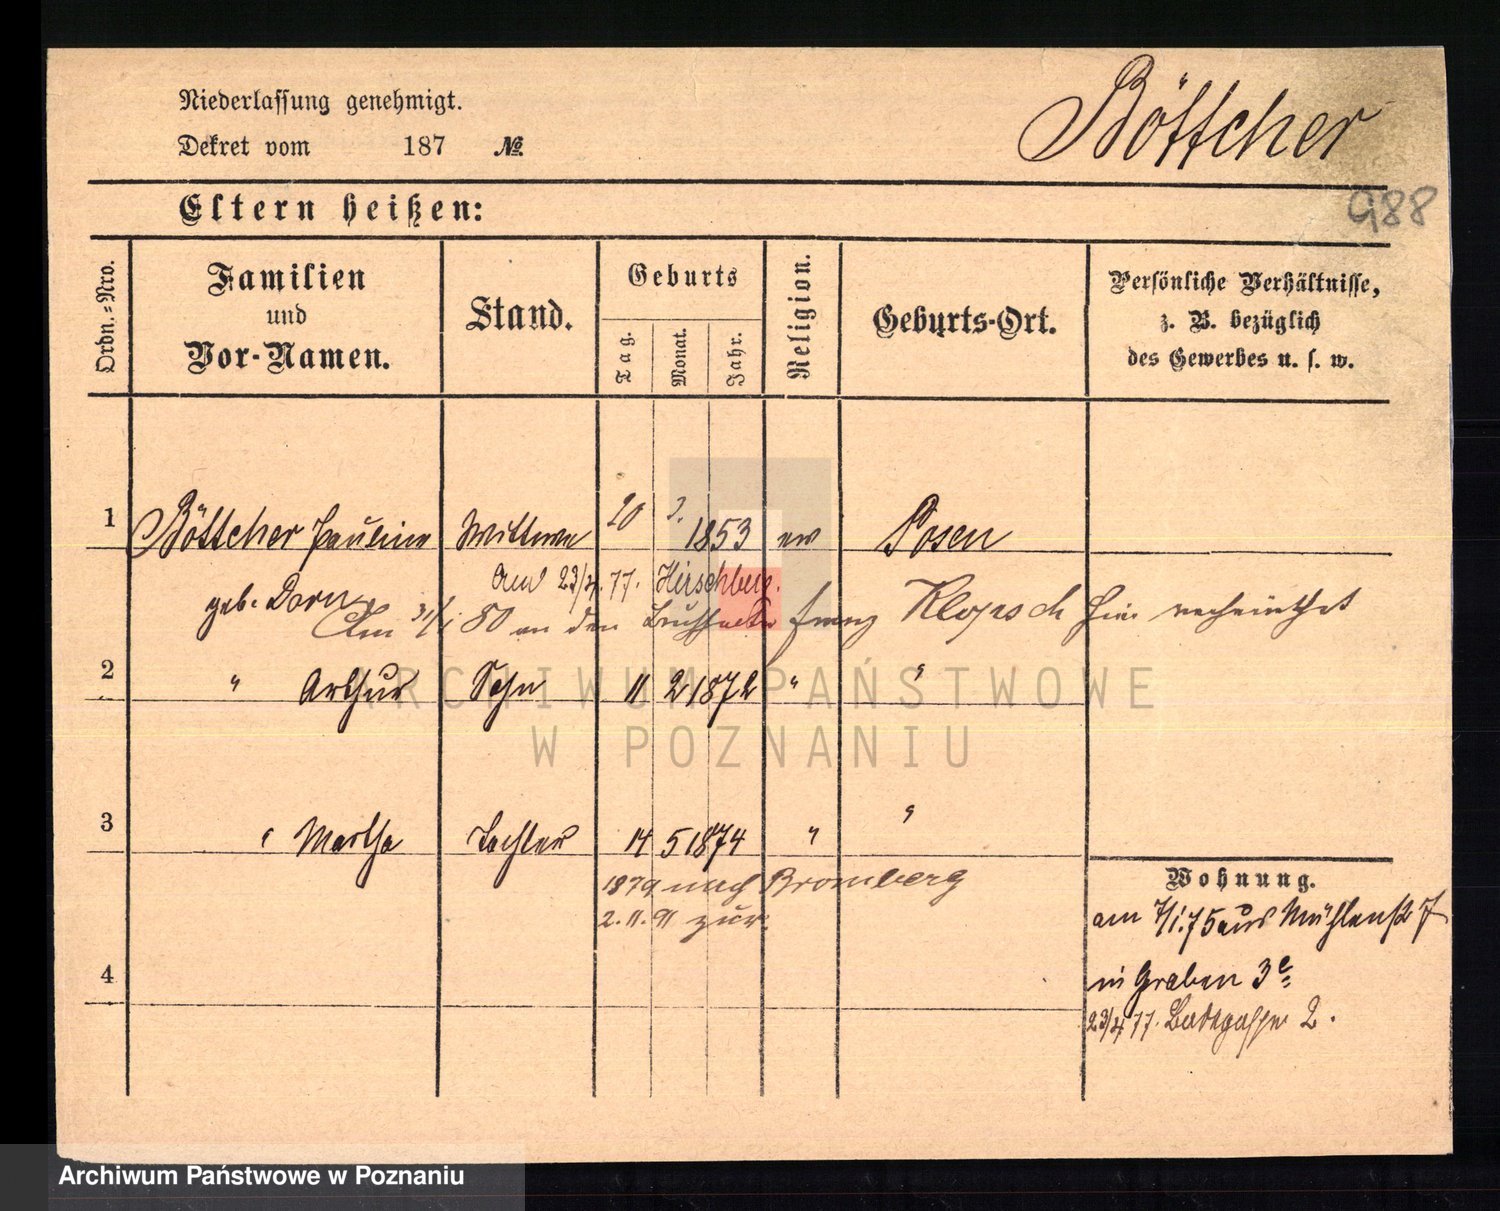 Niederlassung genehmigt.
Dekret vom 187 №
Böttcher
988
Eltern heißen:
Ordn.=Nro.
Familien
und
Vor-Namen.
Stand.
Geburts
Tag.
Monat.
Jahr.
Religion.
Geburts-Ort.
Persönliche Verhältnisse,
z. B. bezüglich
des Gewerbes u. s. w.
1 Böttcher Pauline Wittwe 20 2. 1853 ev Posen
geb. Dorn
Am 23/4. 77. Hirschberg.
Am 31/1 80 an den Franz Klopsch hier verheirathet
2 " Arthur Sohn 11 2 1872 " "
3 " Martha Tochter 14 5 1874 " "
1879 nach Bromberg
2. 11. 91 zur.
4
Wohnung.
am 7/1.75 aus Mühlenstr 7
in Graben 3
23/4 77. 2.
ARCHIWUM PAŃSTWOWE
W POZNANIU
Archiwum Państwowe w Poznaniu